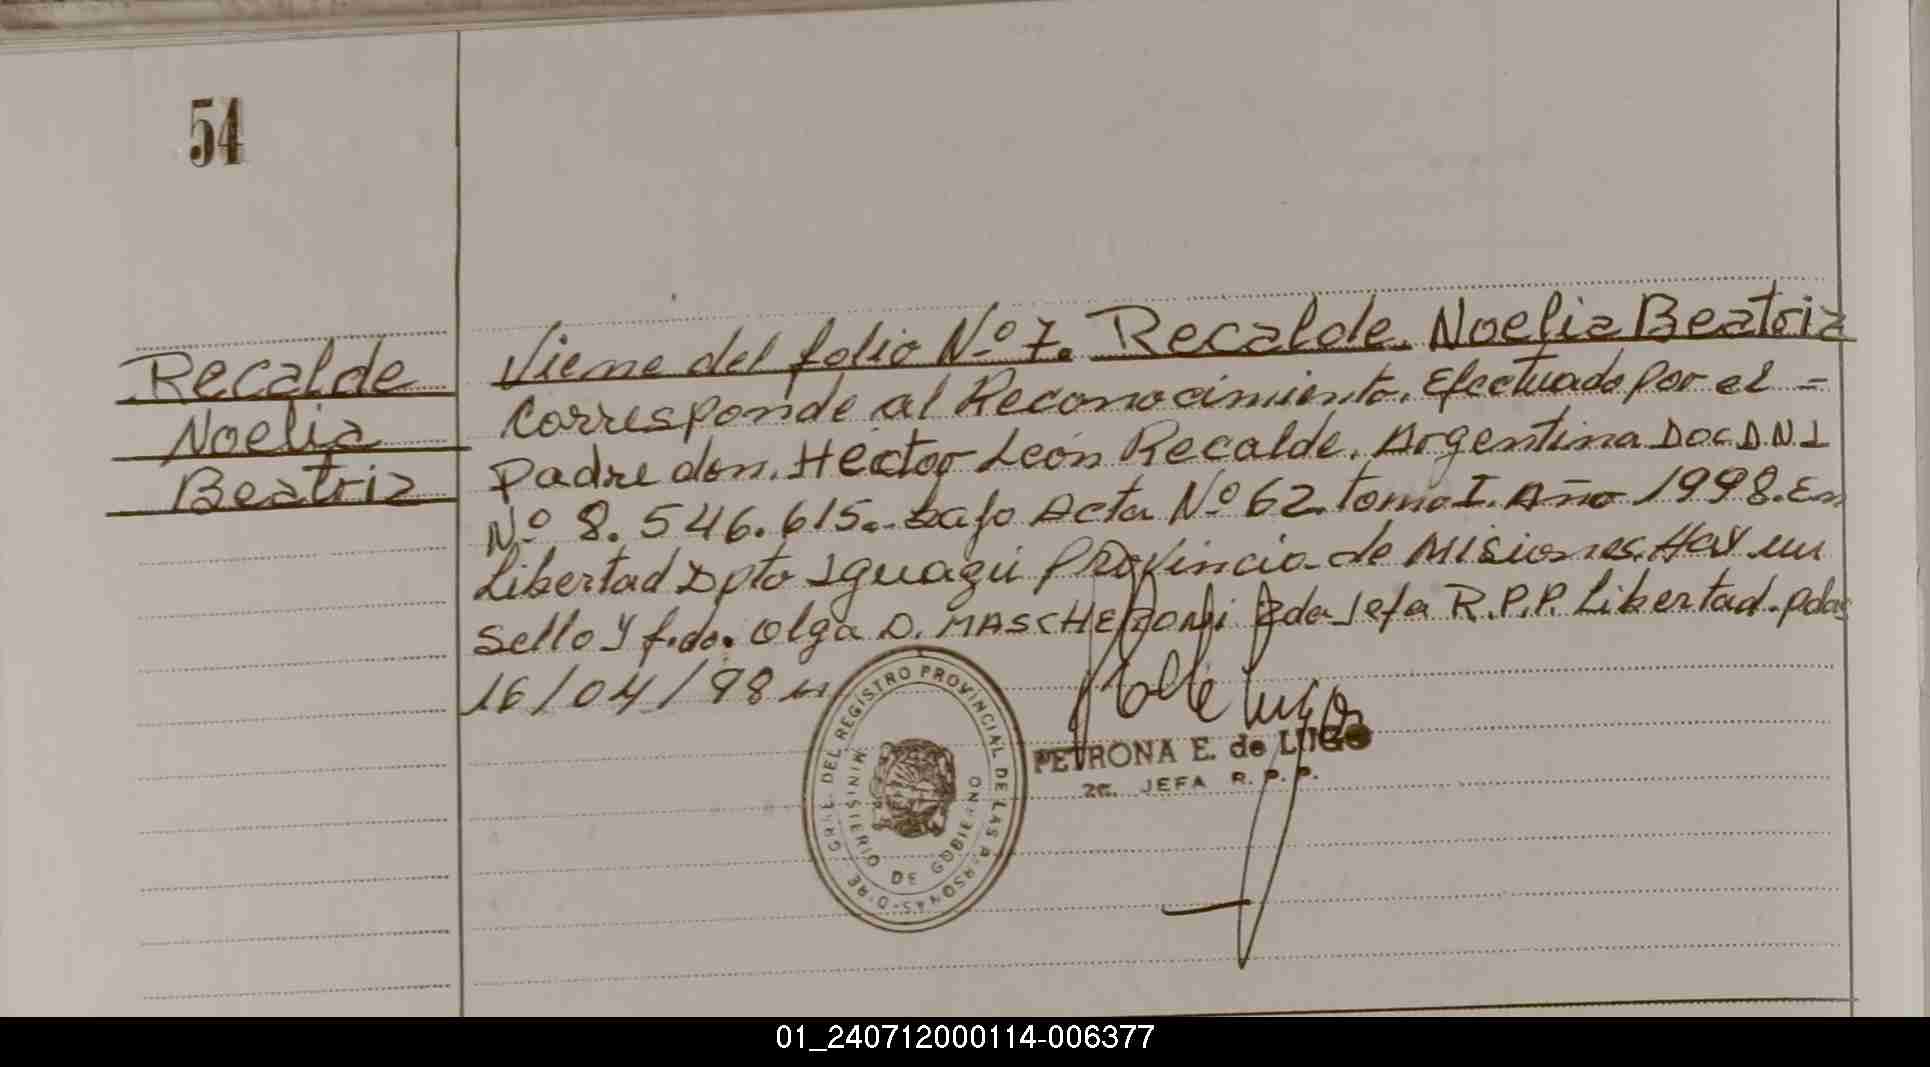 54
Recalde
Noelia
Beatriz
Viene del folio Nº 7. Recalde. Noelia Beatriz
Corresponde al Reconocimiento. Efectuado por el =
padre don. Hector León Recalde. Argentina Doc. D.N.I
Nº 8.546.615.- bajo Acta Nº 62. tomo I. Año 1998. En
Libertad Dpto Iguazú Provincia de Misiones. Hay un
Sello y f.do. Olga D. MASCHERONI 2da Jefa R.P.P. Libertad. pdas
16/04/98
REGISTRO PROVINCIAL DE LAS PERSONAS - DIRE. GRAL. DEL
MINISTERIO DE GOBIERNO
PETRONA E. de LUGO
2a. JEFA R. P. P.
01_240712000114-006377